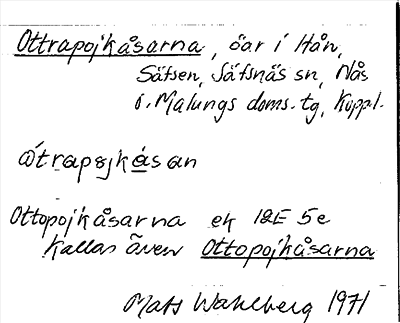 Ottrapojkåsarna, öar i Hån,
Säfsen, Säfsnäs sn, Nås
o. Malungs doms. tg, Koppl.
åtrapojkåsan
Ottopojkåsarna ek 12E 5e
Kallas även Ottopojkåsarna
Mats Wahlberg 1971